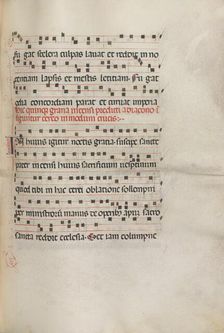 fu gat scelera culpas lavat et reddit in no
centiam lapsis et mestis leticiam. Fu gat
odia concordiam parat et curvat imperia
hic quinque grana incensi
figuntur cereo in modum crucis
In huius igitur noctis gratia suscipe sancte
pater incensi huius sacrificium vespertinum
quod tibi in hac cerei oblatione sollempni
per ministrorum manus de operibus apum sacro
sancta reddit ecclesia. Set iam columpne